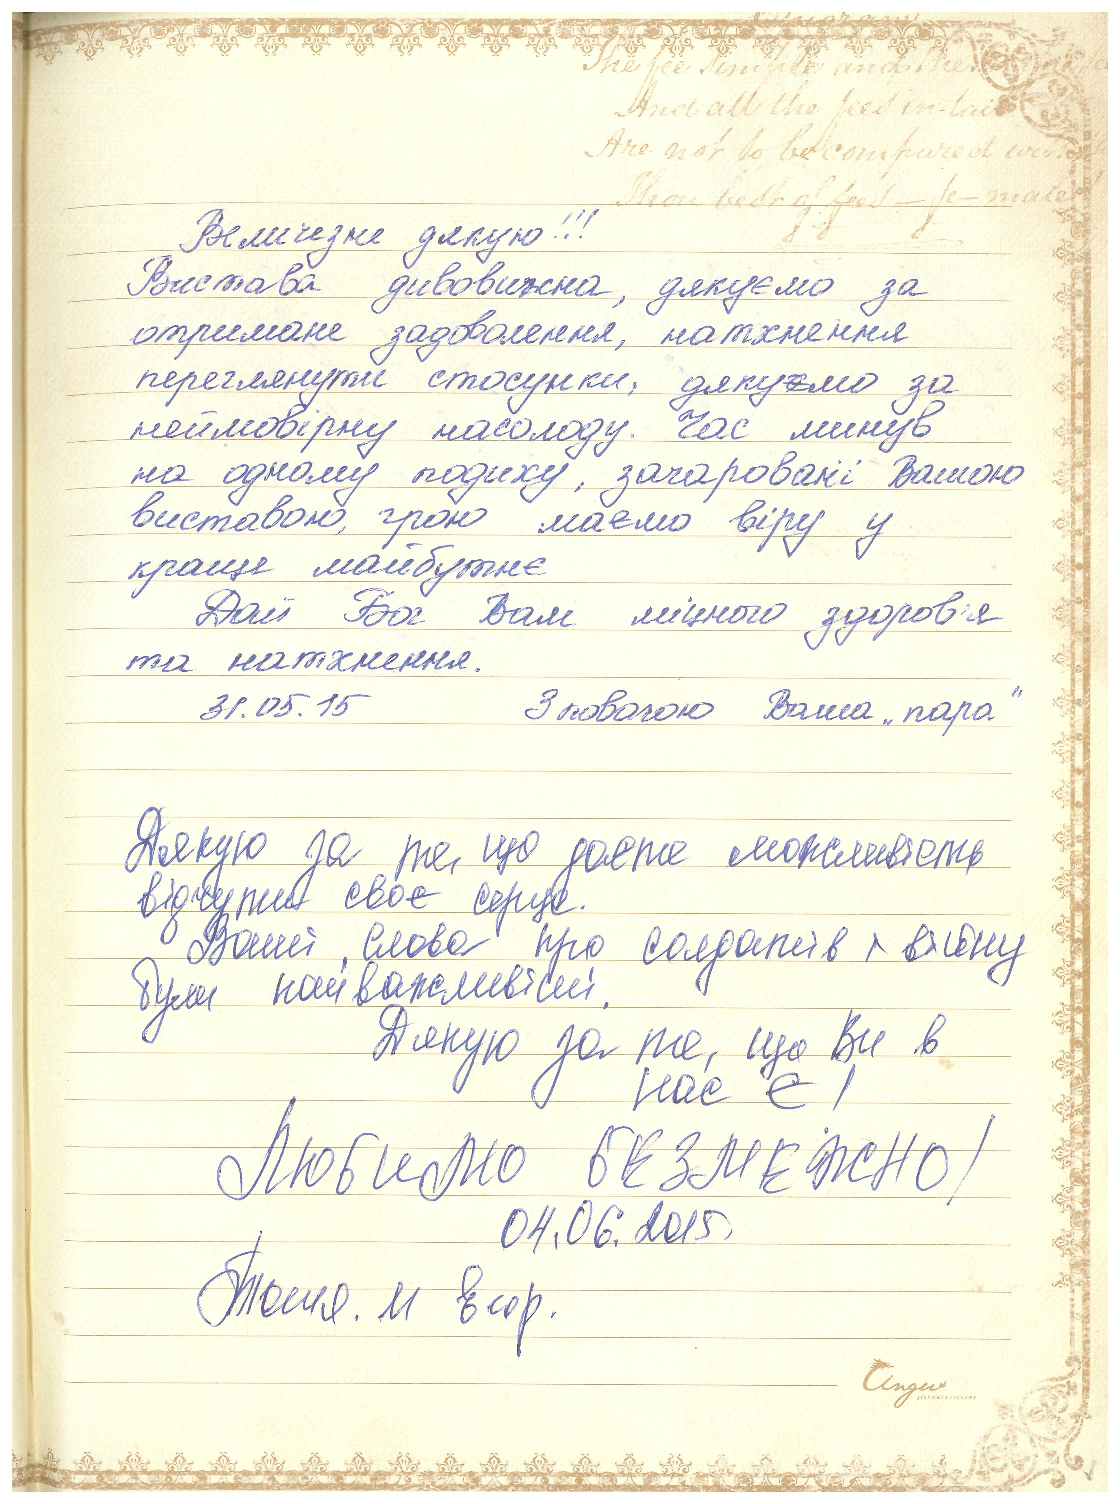 The fee simple and the
And all the fees in-tail
Are not to be compared with
Thou best of fees – fe-male!
Величезне дякую!!!
Вистава дивовижна, дякуємо за
отримане задоволення, натхнення
переглянути стосунки, дякуємо за
неймовірну насолоду. Час минув
на одному подиху, зачаровані Вашою
виставою, грою маємо віру у
краще майбутнє
Дай Бог Вам міцного здоров'я
та натхнення.
31.05.15 З повагою Ваша „пара"
Дякую за те, що даєте можливість
відчути своє серце.
Ваші слова про солдатів і війну
були найважливіші.
Дякую за те, що Ви в
нас є!
ЛЮБИМО БЕЗМЕЖНО!
04.06.2015.
Таня. и Егор.
Angel